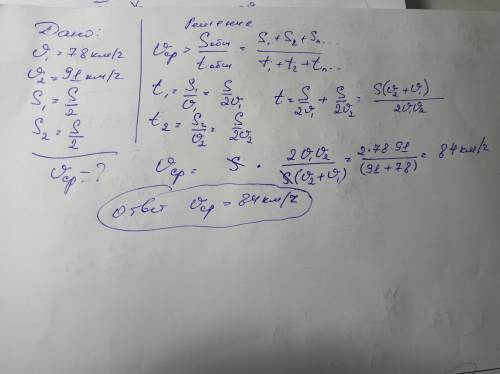 Дано:
υ₁ = 78 км/ч
υ₂ = 91 км/ч
S₁ = S/2
S₂ = S/2
υср = ?
Решение
υср = Sобщ/tобщ = (S₁ + S₂ + Sn...)/(t₁ + t₂ + tn...)
t₁ = S₁/υ₁ = S/2υ₁ t = S/2υ₁ + S/2υ₂ = S(υ₂ + υ₁)/2υ₁υ₂
t₂ = S₂/υ₂ = S/2υ₂
υср = S · 2υ₁υ₂/S(υ₂ + υ₁) = 2·78·91/(91 + 78) = 84 км/ч
Ответ υср = 84 км/ч